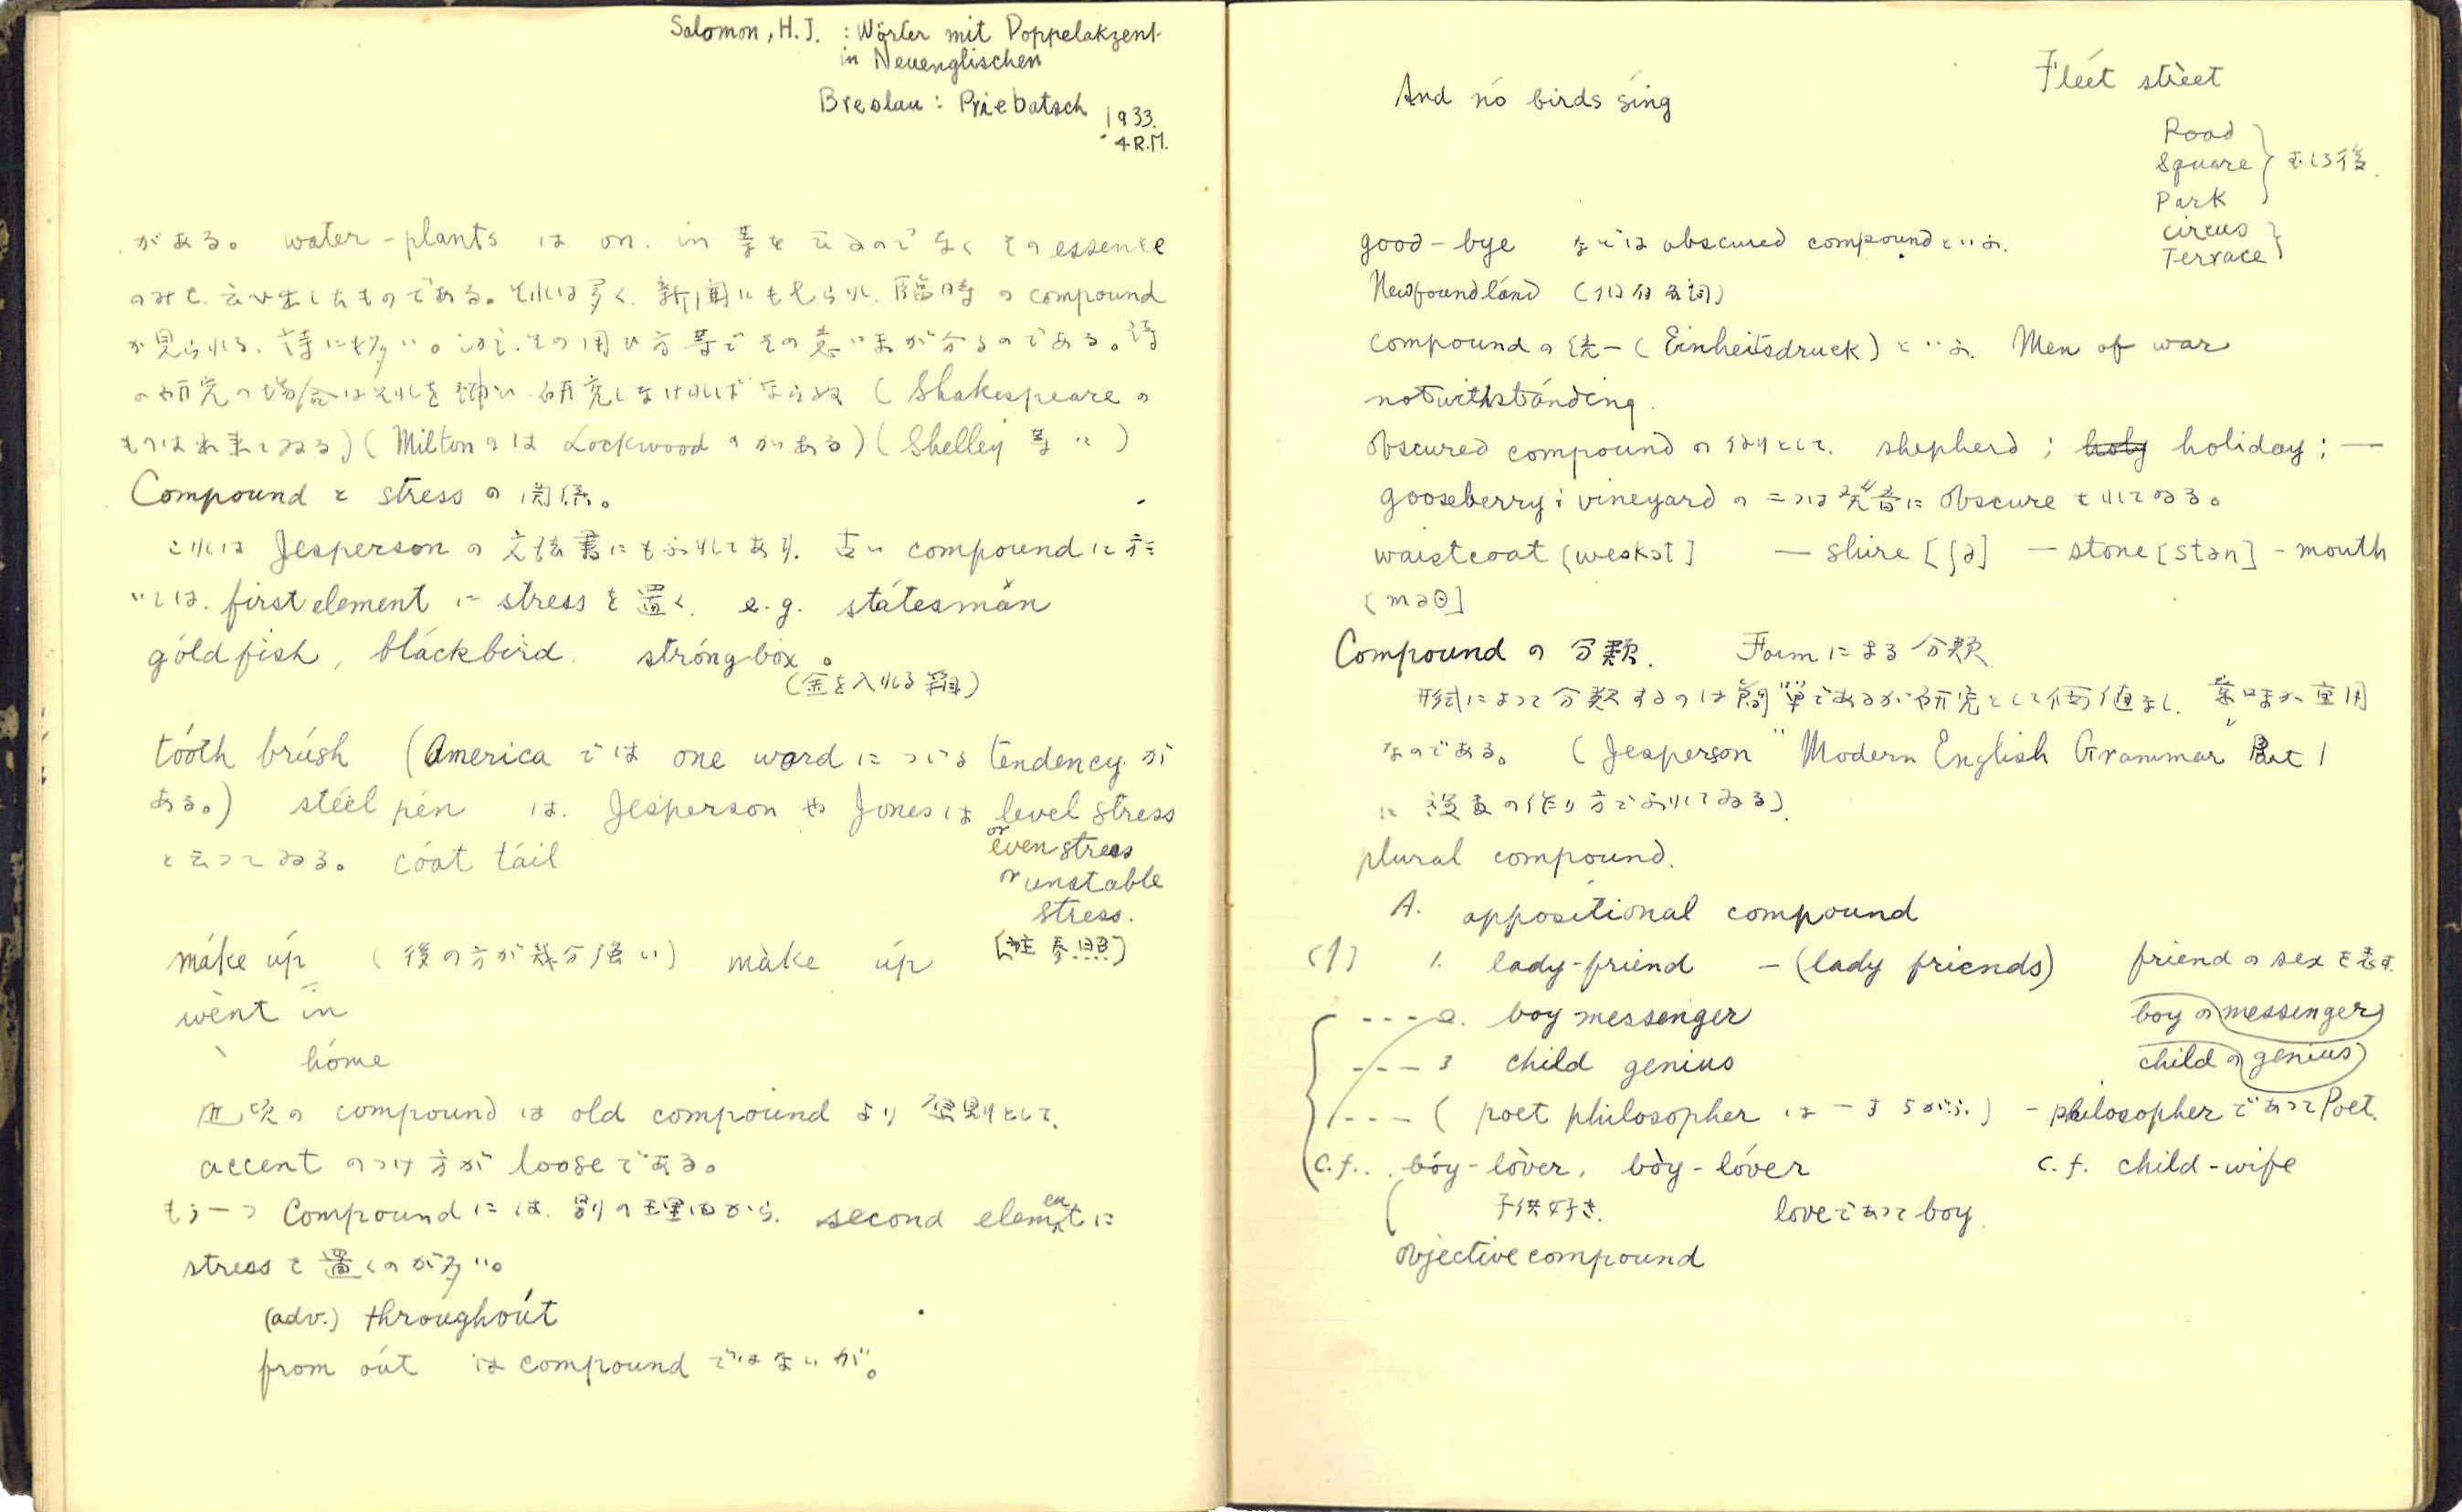 Salomon, H.J. : Wörter mit Doppelakzent
in Neuenglischen
Breslau : Priebatsch 1933.
4 R.M.
がある。 water-plants は on. in 等を云ふのでなく その essence
のみを云ひ出したものである。それは多く、新聞にも見られ、臨時の compound
が見られる、詩にも多い。その用ひ方等でその意味が分るのである。詩
の研究の場合はそれを 研究しなければならぬ (Shakespeare の
もつは出来てゐる) (Milton のは Lockwood のがある) (Shelley 等に)
Compound と stress の関係。
これは Jesperson の文法書にもふれてあり、古い compound に於
いては、first element に stress を置く、 e.g. státesmăn
góldfish, bláckbird. stróngbox。
(金を入れる箱)
tóoth brúsh (America では one word につける tendency が
ある。) stéel pén は、Jesperson や Jones は level stress
or even stress
or unstable
stress.
と云つてゐる。 cóat táil
máke úp (後の方が幾分強い) màke úp [註参照)
wènt ín
hóme
近頃の compound は old compound より 原則として、
accent のつけ方が loose である。
もう一つ Compound には、別の理由から、second element に
stress を置くのが多い。
(adv.) throughóut
from óut は compound ではないが。
And nó birds síng
Fléet strèet
Road
Square
Park
むしろ後.
Circus
Terrace
good-bye などは obscured compound といふ.
Newfoundlánd (固有名詞)
compound の統一 (Einheitsdruck) といふ. Men of war
notwithstánding.
Obscured compound の例として. shepherd ; holy holiday ; —
gooseberry ; vineyard の二つは発音に obscure されてゐる。
waistcoat [weskət] — shire [ʃə] — stone [stən] - mouth
[məθ]
Compound の分類. Form による分類
形式によつて分類するのは簡単であるが研究として価値なし. 意味が重用
なのである。 (Jesperson "Modern English Grammar" Part 1
に 複数の作り方でふれてゐる).
plural compound.
A. appositional compound
(1) 1. lady-friend — (lady friends) friend の sex を表す.
---- 2. boy messenger boy の messenger
---- 3 child genius child の genius
---- ( poet philosopher は 一寸ちがふ ) - philosopher であつて Poet.
c.f... bóy-lòver, bòy-lóver c.f. child-wife
子供好き. love であつて boy.
objective compound